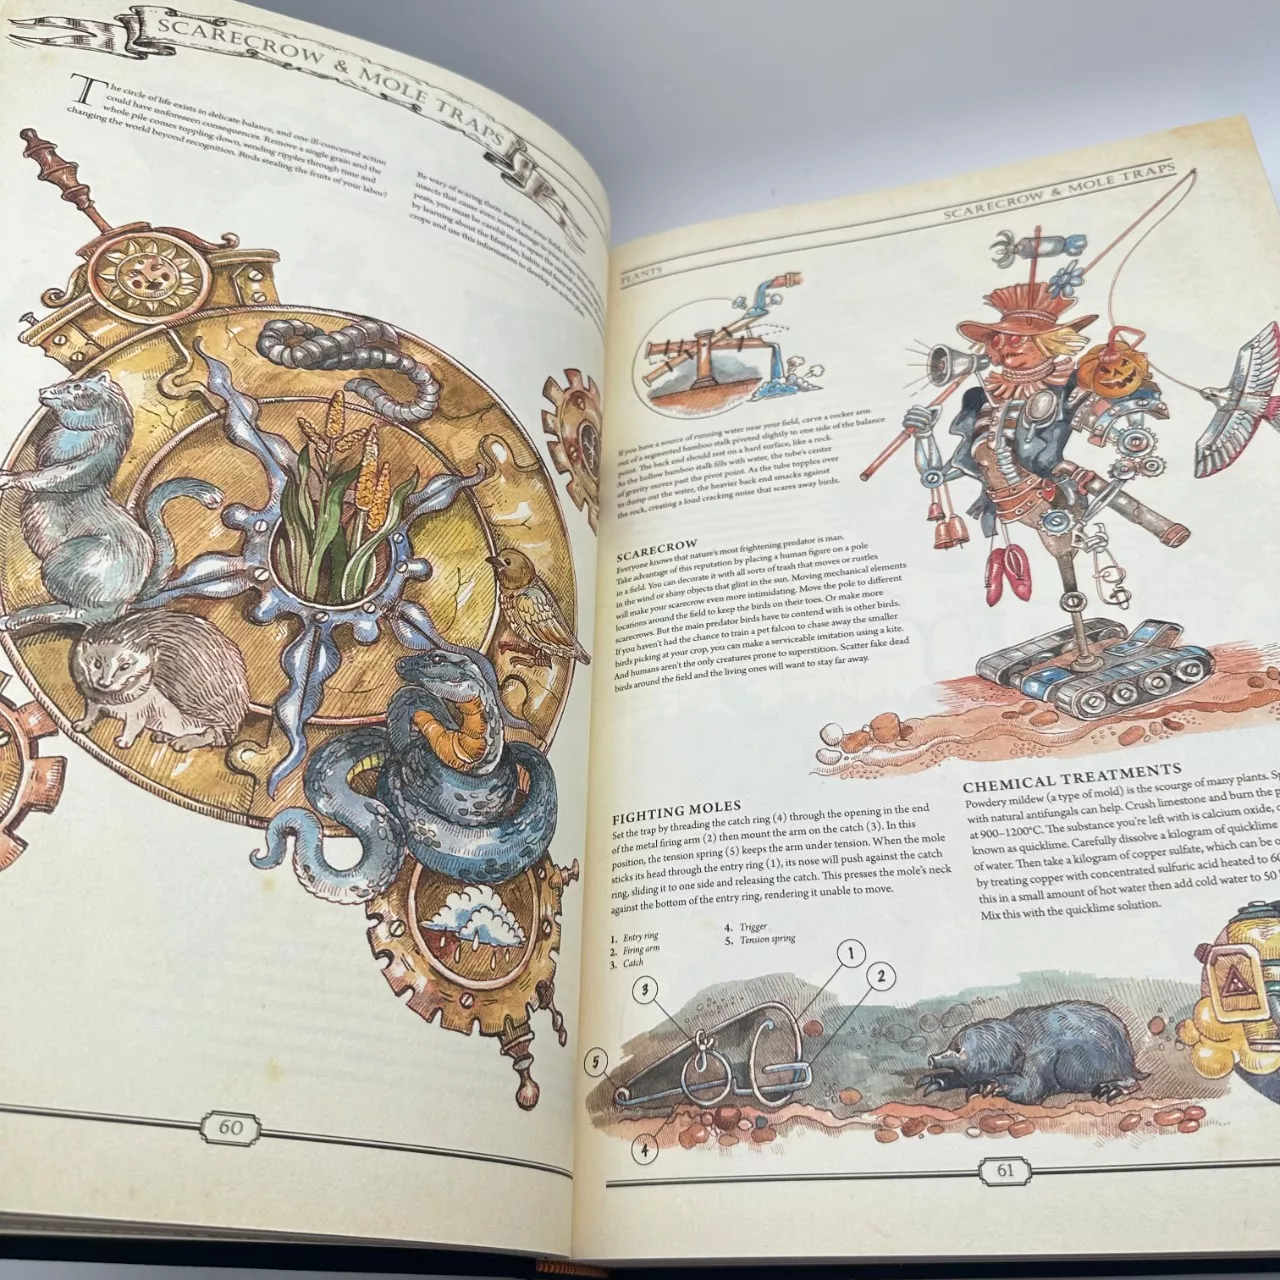 SCARECROW & MOLE TRAPS
The circle of life exists in delicate balance, and one ill-conceived action
could have unforeseen consequences. Remove a single grain and the
whole pile comes toppling down, sending ripples through time and
changing the world beyond recognition. Birds stealing the fruits of your labor?
Be wary of scaring them away, lest your fields be
insects that cause even more damage to your crops.
pests, you must be careful not to upset the
by learning about the lifestyles, habits and
crops and use this information to develop an action plan.
60
PLANTS
SCARECROW & MOLE TRAPS
If you have a source of running water near your field, carve a rocker arm
out of a segmented bamboo stalk pivoted slightly to one side of the balance
point. The back end should rest on a hard surface, like a rock.
As the hollow bamboo stalk fills with water, the tube's center
of gravity moves past the pivot point. As the tube topples over
to dump out the water, the heavier back end smacks against
the rock, creating a loud cracking noise that scares away birds.
SCARECROW
Everyone knows that nature's most frightening predator is man.
Take advantage of this reputation by placing a human figure on a pole
in a field. You can decorate it with all sorts of trash that moves or rustles
in the wind or shiny objects that glint in the sun. Moving mechanical elements
will make your scarecrow even more intimidating. Move the pole to different
locations around the field to keep the birds on their toes. Or make more
scarecrows. But the main predator birds have to contend with is other birds.
If you haven't had the chance to train a pet falcon to chase away the smaller
birds picking at your crop, you can make a serviceable imitation using a kite.
And humans aren't the only creatures prone to superstition. Scatter fake dead
birds around the field and the living ones will want to stay far away.
FIGHTING MOLES
Set the trap by threading the catch ring (4) through the opening in the end
of the metal firing arm (2) then mount the arm on the catch (3). In this
position, the tension spring (5) keeps the arm under tension. When the mole
sticks its head through the entry ring (1), its nose will push against the catch
ring, sliding it to one side and releasing the catch. This presses the mole's neck
against the bottom of the entry ring, rendering it unable to move.
1. Entry ring
2. Firing arm
3. Catch
4. Trigger
5. Tension spring
CHEMICAL TREATMENTS
Powdery mildew (a type of mold) is the scourge of many plants.
with natural antifungals can help. Crush limestone and burn the
at 900–1200°C. The substance you're left with is calcium oxide,
known as quicklime. Carefully dissolve a kilogram of quicklime
of water. Then take a kilogram of copper sulfate, which can be
by treating copper with concentrated sulfuric acid heated to
this in a small amount of hot water then add cold water to 50
Mix this with the quicklime solution.
1
2
3
5
4
61